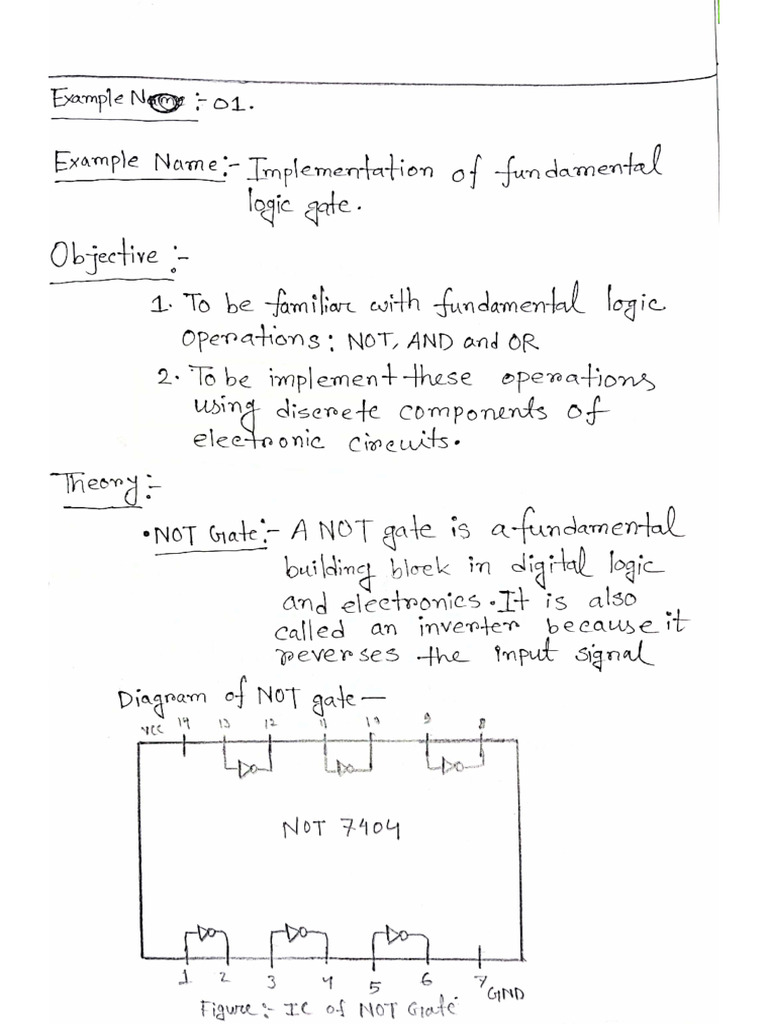 Example N :- 01.
Example Name:- Implementation of fundamental
logic gate.
Objective :-
1. To be familiar with fundamental logic
operations: NOT, AND and OR
2. To be implement these operations
using discrete components of
electronic circuits.
Theory:-
• NOT Gate:- A NOT gate is a fundamental
building block in digital logic
and electronics. It is also
called an inverter because it
reverses the input signal
Diagram of NOT gate—
VCC 14 13 12 11 10 9 8
NOT 7404
1 2 3 4 5 6 7 GND
Figure:- IC of NOT Gate